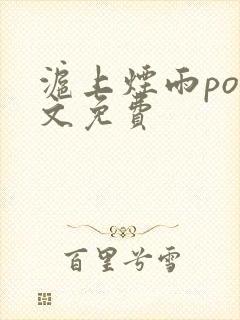 滬上煙雨po
文免費
百里兮雪